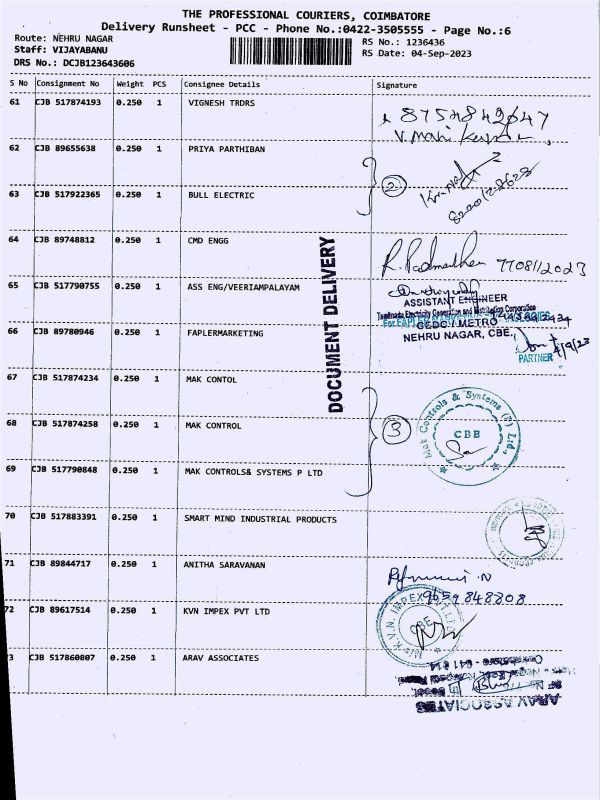 THE PROFESSIONAL COURIERS, COIMBATORE
Delivery Runsheet - PCC - Phone No.:0422-3505555 - Page No.:6
Route: NEHRU NAGAR RS No.: 1236436
Staff: VIJAYABANU RS Date: 04-Sep-2023
DRS No.: DCJB123643606
S No Consignment No Weight PCS Consignee Details Signature
61 CJB 517874193 0.250 1 VIGNESH TRDRS
62 CJB 89655638 0.250 1 PRIYA PARTHIBAN
2
63 CJB 517922365 0.250 1 BULL ELECTRIC
64 CJB 89748812 0.250 1 CMD ENGG
DOCUMENT DELIVERY
65 CJB 517790755 0.250 1 ASS ENG/VEERIAMPALAYAM
ASSISTANT ENGINEER
Tamilnadu Electricity Generation and Distribution Corporation
CEDC / METRO
NEHRU NAGAR, CBE.
66 CJB 89780946 0.250 1 FAPLERMARKETING
PARTNER
67 CJB 517874234 0.250 1 MAK CONTOL
68 CJB 517874258 0.250 1 MAK CONTROL
3
Mak Controls & Systems (P) Ltd.,
CBE
69 CJB 517790848 0.250 1 MAK CONTROLS& SYSTEMS P LTD
70 CJB 517883391 0.250 1 SMART MIND INDUSTRIAL PRODUCTS
71 CJB 89844717 0.250 1 ANITHA SARAVANAN
9659848808
72 CJB 89617514 0.250 1 KVN IMPEX PVT LTD
M/s K.V.N. IMPEX PVT. LTD
CBE
3 CJB 517860807 0.250 1 ARAV ASSOCIATES
ARAV ASSOCIATES